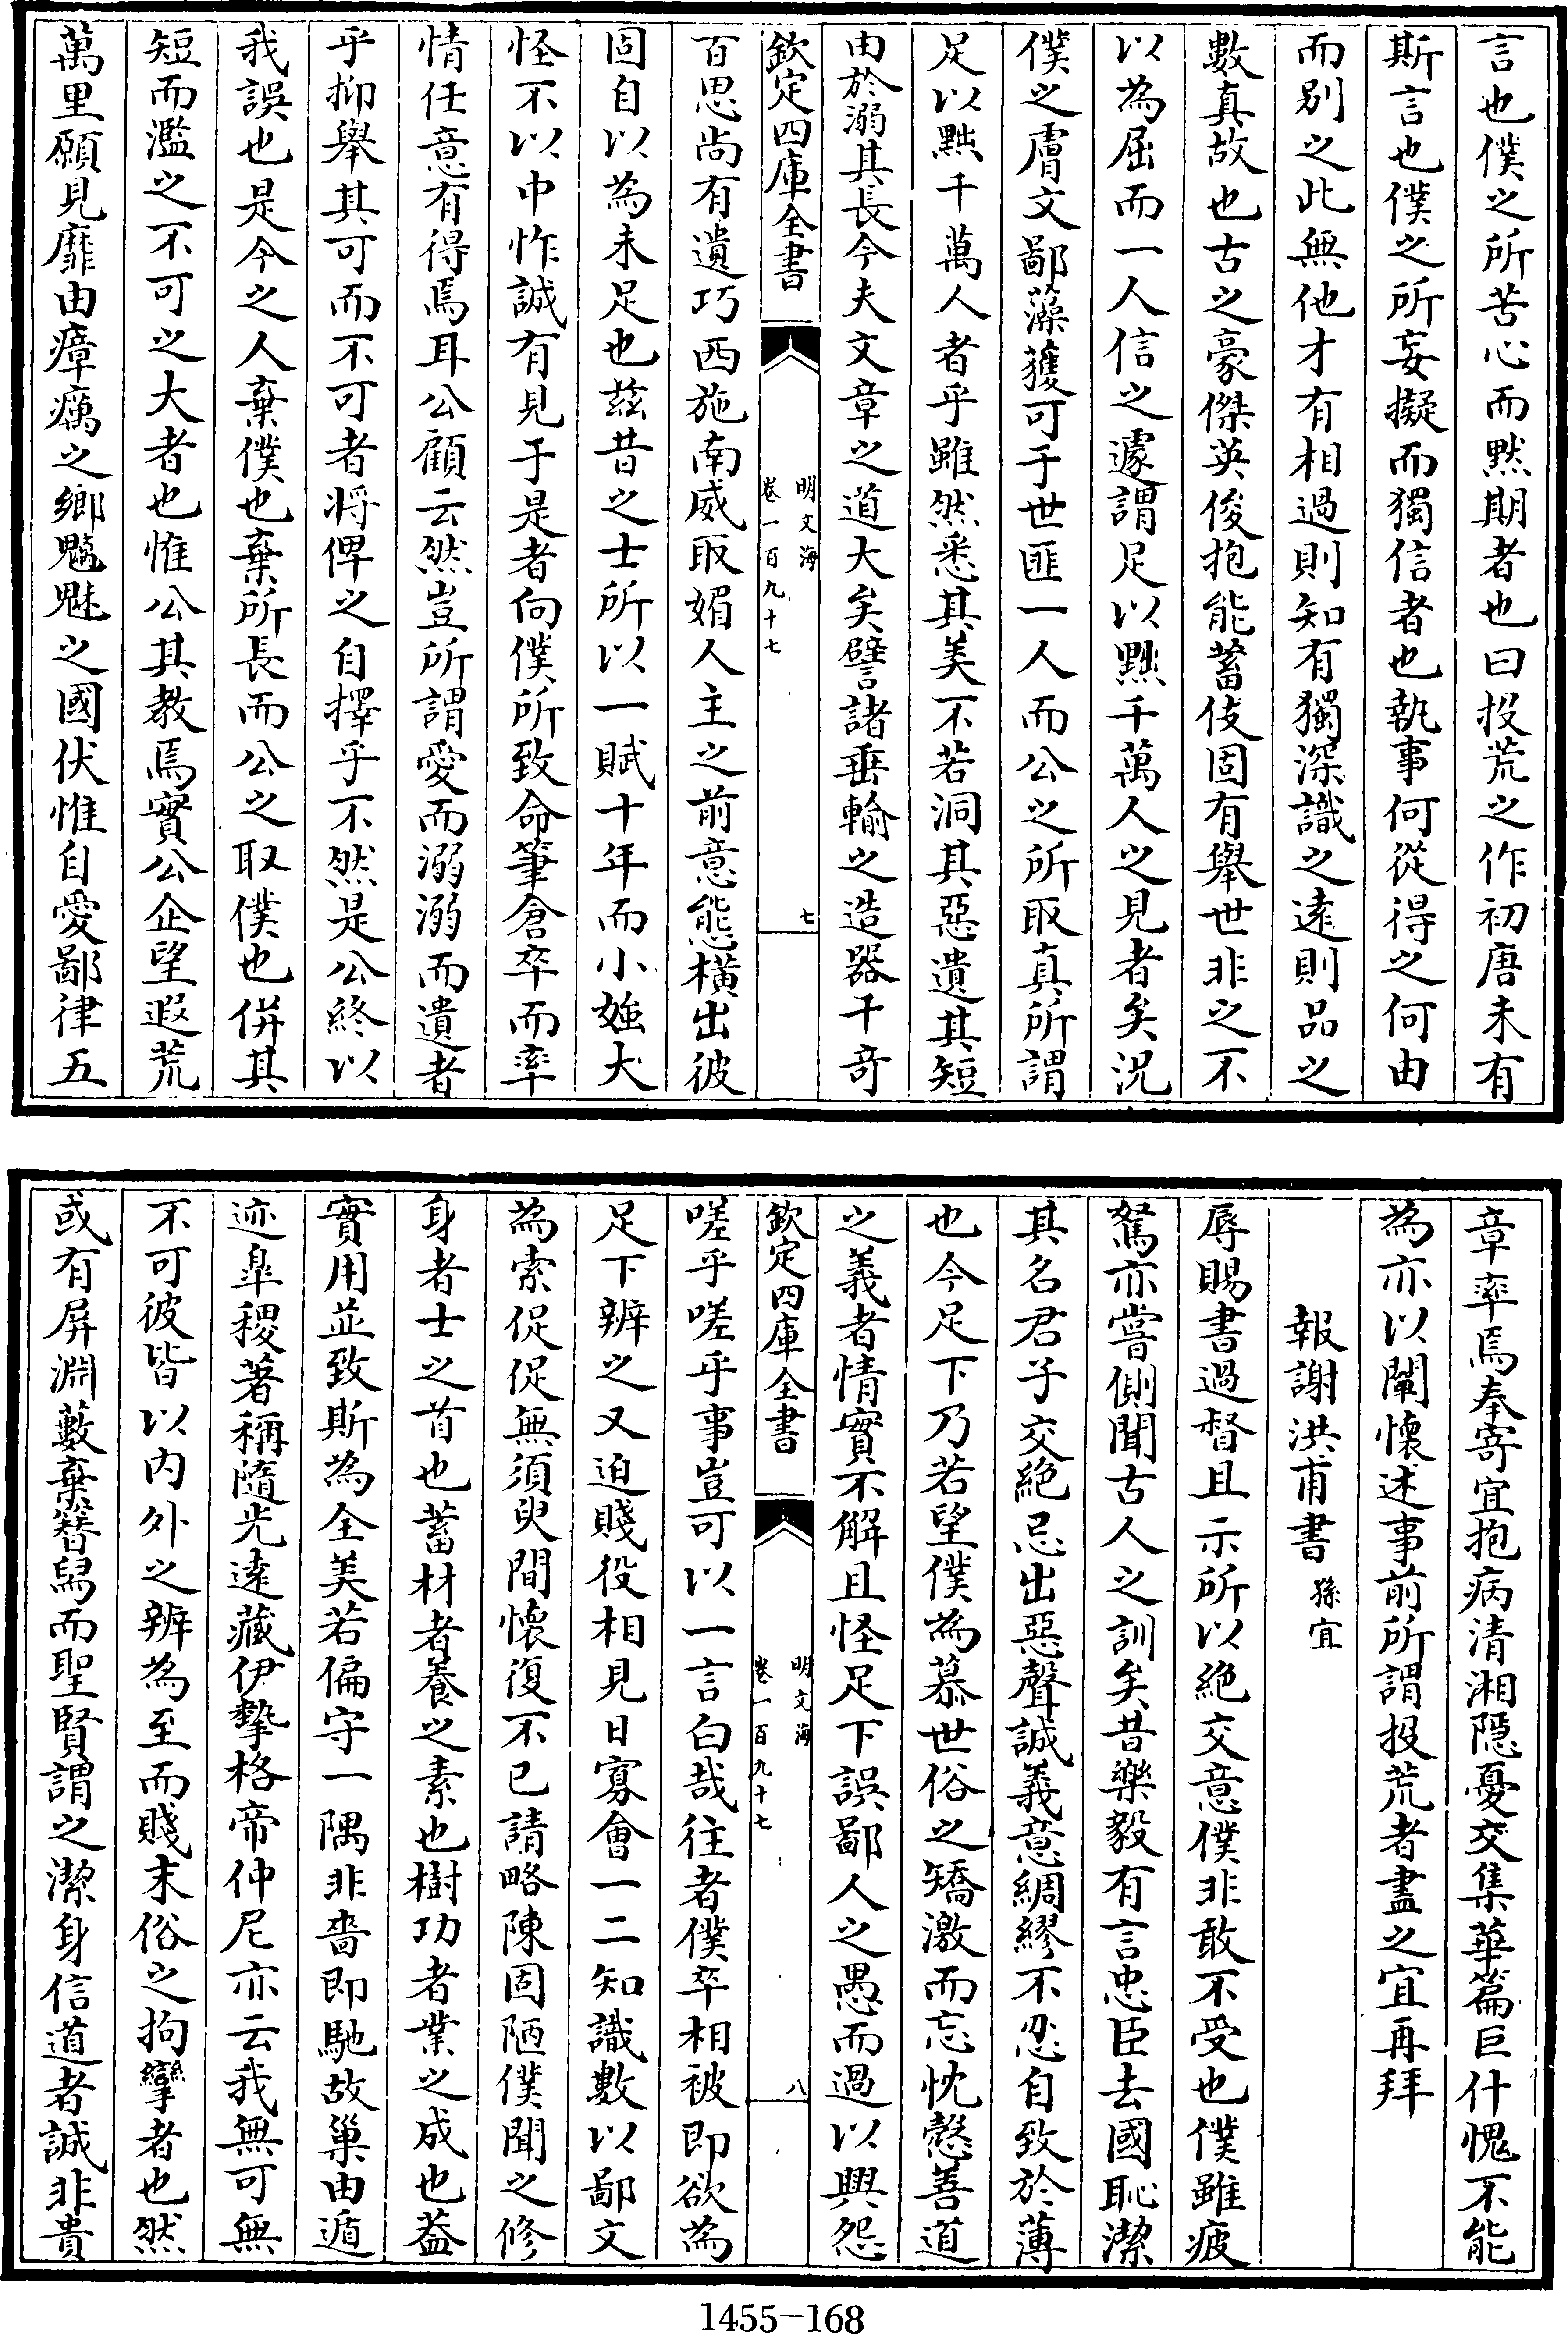 言也僕之所苦心而黙期者也曰投荒之作初唐未有
斯言也僕之所妄擬而獨信者也執事何從得之何由
而别之此無他才有相過則知有獨深識之逺則品之
數真故也古之豪傑英俊抱能蓄伎固有舉世非之不
以為屈而一人信之遽謂足以㸃千萬人之見者矣況
僕之膚文鄙藻獲可于世匪一人而公之所取真所謂
足以㸃千萬人者乎雖然悉其美不若洞其惡遺其短
由於溺其長今夫文章之道大矣譬諸垂輸之造器千竒
欽定四庫全書
明文海
卷一百九十七
七
百思尚有遺巧西施南威取媚人主之前意態橫出彼
固自以為未足也兹昔之士所以一賦十年而小䂓大
怪不以中怍誠有見于是者向僕所致命筆倉卒而率
情任意有得焉耳公顧云然豈所謂愛而溺溺而遺者
乎抑舉其可而不可者將俾之自擇乎不然是公終以
我誤也是今之人棄僕也棄所長而公之取僕也併其
短而濫之不可之大者也惟公其教焉實公企望遐荒
萬里願見靡由瘴癘之鄉魑魅之國伏惟自愛鄙律五
章率焉奉寄宜抱病清湘隠憂交集華篇巨什愧不能
為亦以闡懷述事前所謂投荒者盡之宜再拜
報謝洪甫書 孫宜
辱賜書過督且示所以絶交意僕非敢不受也僕雖疲
駑亦嘗側聞古人之訓矣昔樂毅有言忠臣去國恥潔
其名君子交絶忌出惡聲誠義意綢繆不忍自致於薄
也今足下乃若望僕為慕世俗之矯激而忘忱慤善道
之義者情實不解且怪足下誤鄙人之愚而過以興怨
欽定四庫全書
明文海
卷一百九十七
八
嗟乎嗟乎事豈可以一言白哉往者僕卒相被即欲為
足下辨之又迫賤役相見日寡會一二知識數以鄙文
為索促促無須臾間懷復不已請略陳固陋僕聞之修
身者士之首也蓄材者養之素也樹功者業之成也葢
實用並致斯為全美若偏守一隅非啬即馳故巢由遁
迹臯稷著稱隨光逺藏伊摯格帝仲尼亦云我無可無
不可彼皆以内外之辨為至而賤末俗之拘攣者也然
或有屏淵藪棄簪舄而聖賢謂之潔身信道者誠非貴
1455-168